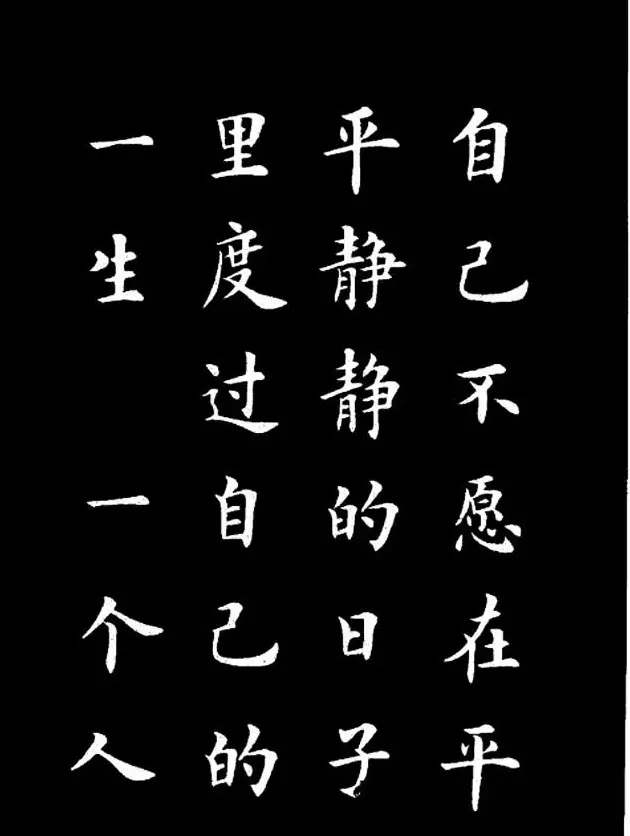 自己不愿在平
平静静的日子
里度过自己的
一生 一个人